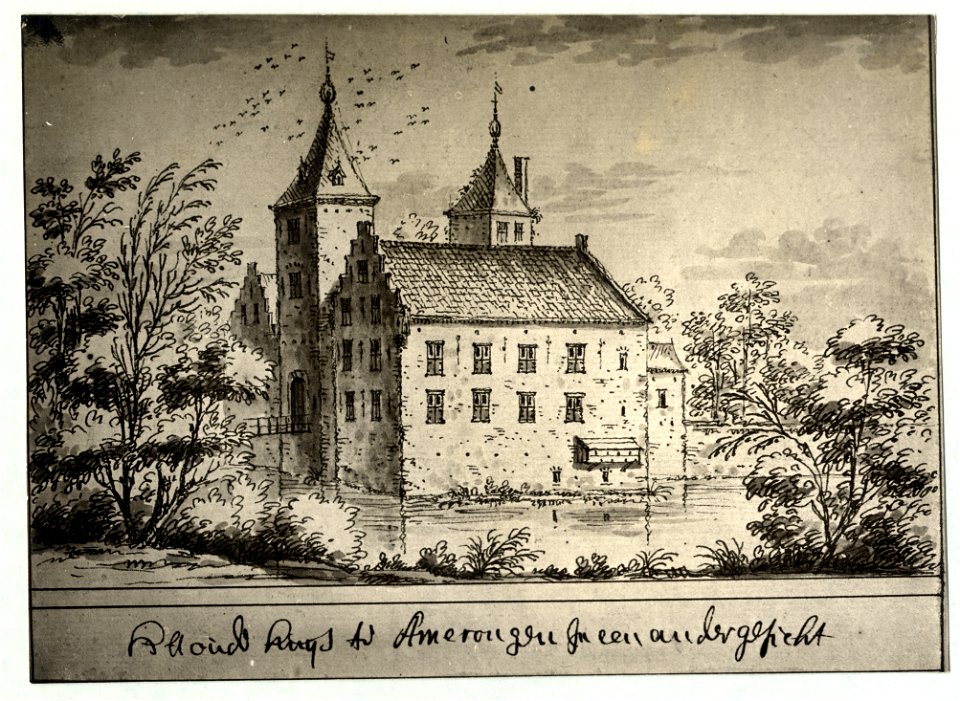 Het oude huys te Amerongen In een ander gesicht